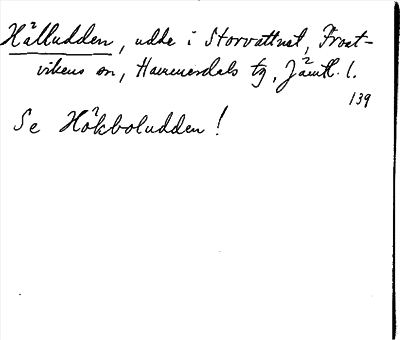 Hålludden, udde i Storvattnet, Frost-
vikens sn, Hammerdals tg, Jämtl. l.
139
Se Hökboludden!